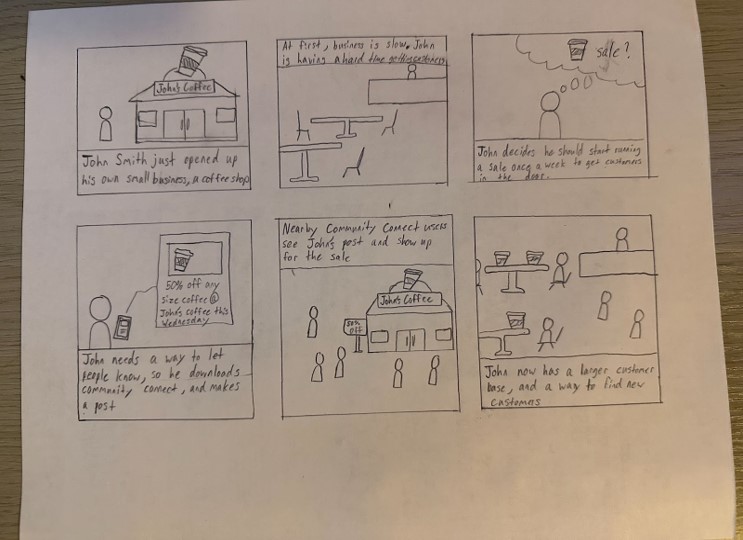 John's Coffee
John Smith just opened up
his own small business, a coffee shop
At first, business is slow. John
is having a hard time getting customers
sale?
John decides he should start running
a sale once a week to get customers
in the door.
50% off any
size coffee @
John's coffee this
Wednesday
John needs a way to let
people know, so he downloads
community connect, and makes
a post
Nearby Community Connect users
see John's post and show up
for the sale
John's Coffee
50%
off
John now has a larger customer
base, and a way to find new
customers